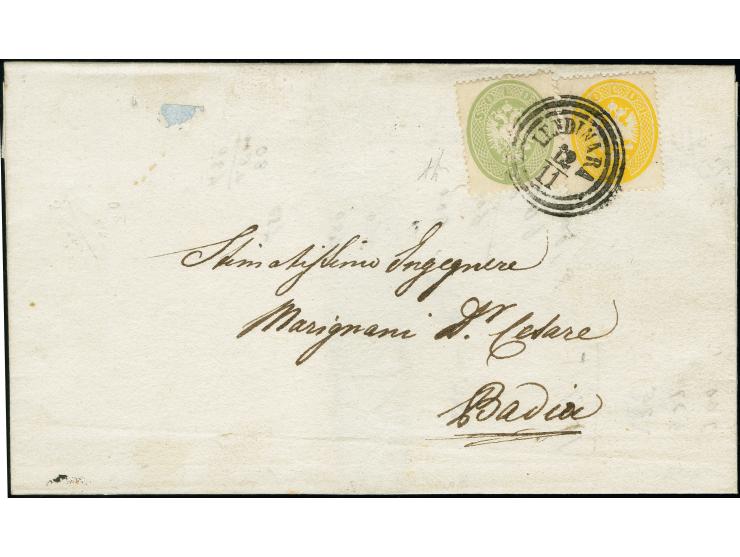 LENDINARA
12
11
Stimatissimo Ingegnere
Marignani Dr. Cesare
Badia